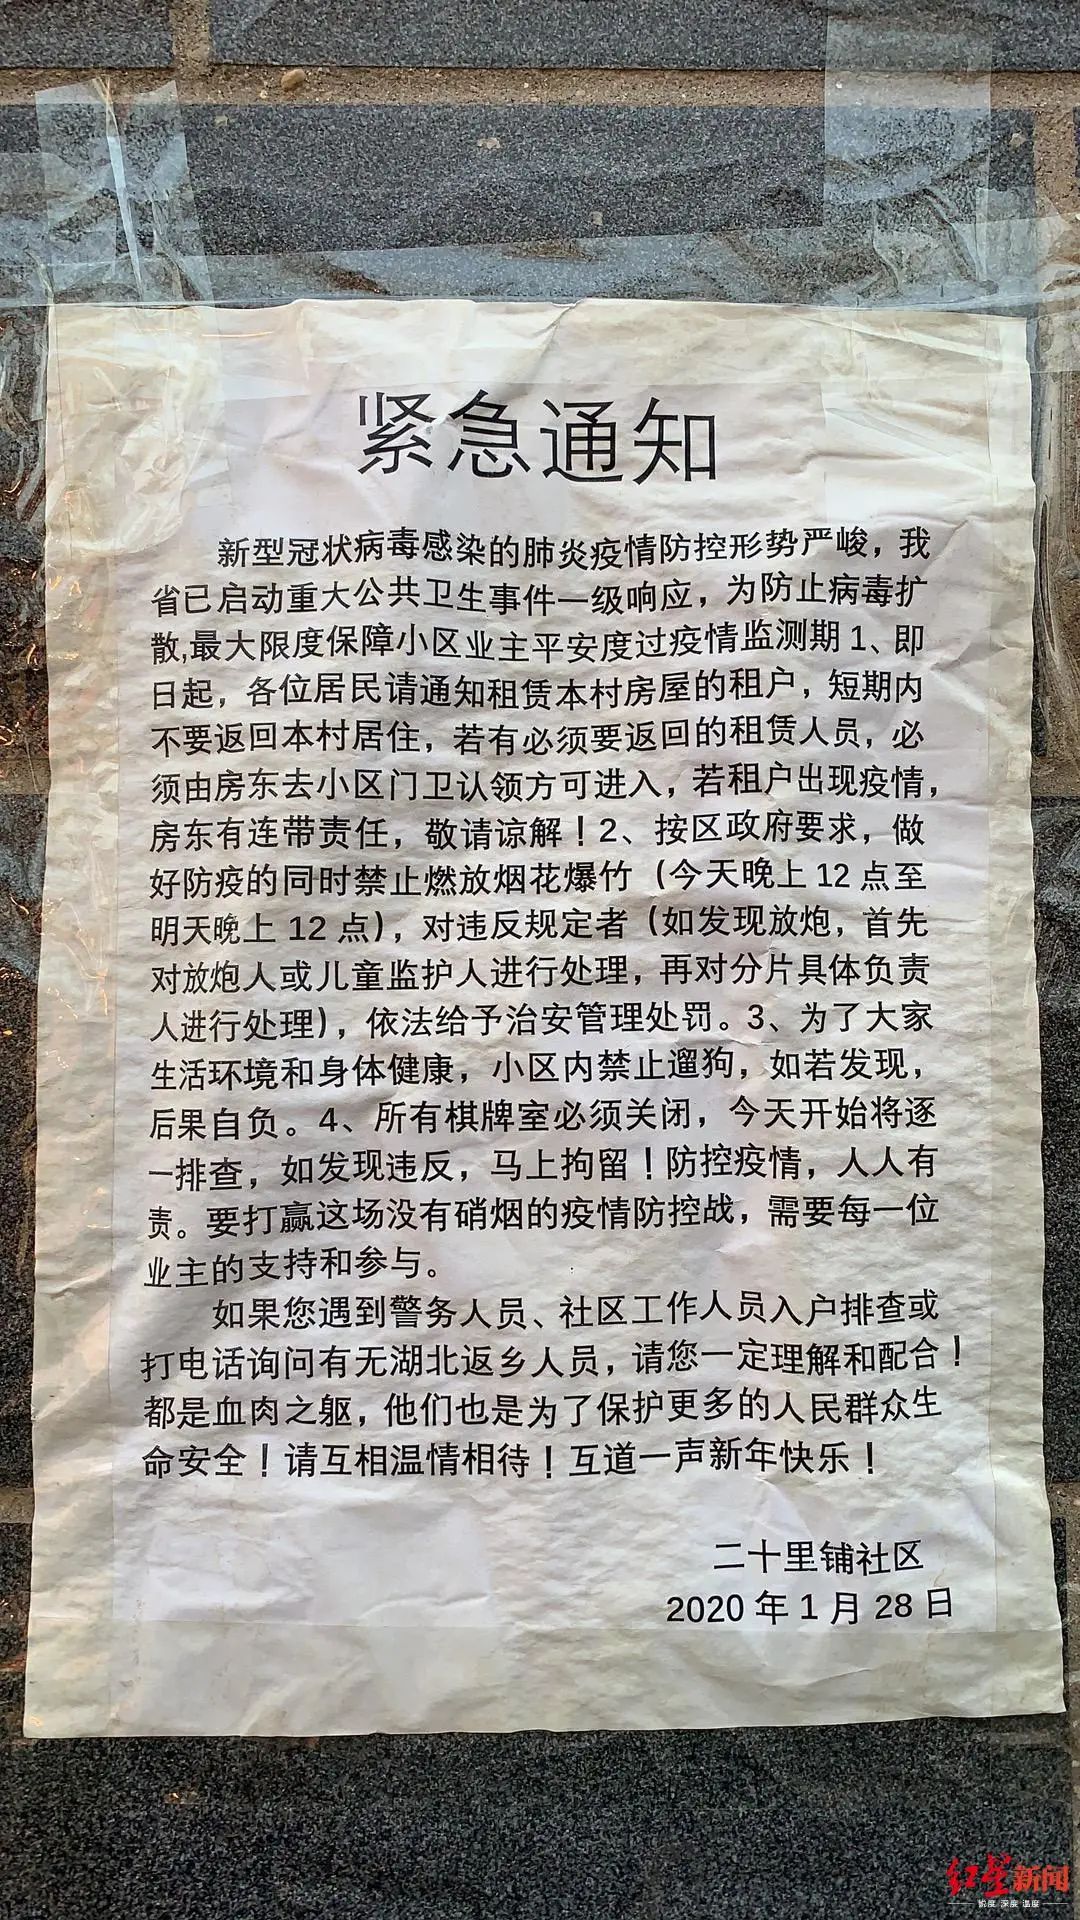 紧急通知
新型冠状病毒感染的肺炎疫情防控形势严峻，我
省已启动重大公共卫生事件一级响应，为防止病毒扩
散,最大限度保障小区业主平安度过疫情监测期1、即
日起，各位居民请通知租赁本村房屋的租户，短期内
不要返回本村居住，若有必须要返回的租赁人员，必
须由房东去小区门卫认领方可进入，若租户出现疫情，
房东有连带责任，敬请谅解！2、按区政府要求，做
好防疫的同时禁止燃放烟花爆竹（今天晚上12点至
明天晚上12点），对违反规定者（如发现放炮，首先
对放炮人或儿童监护人进行处理，再对分片具体负责
人进行处理），依法给予治安管理处罚。3、为了大家
生活环境和身体健康，小区内禁止遛狗，如若发现，
后果自负。4、所有棋牌室必须关闭，今天开始将逐
一排查，如发现违反，马上拘留！防控疫情，人人有
责。要打赢这场没有硝烟的疫情防控战，需要每一位
业主的支持和参与。
如果您遇到警务人员、社区工作人员入户排查或
打电话询问有无湖北返乡人员，请您一定理解和配合！
都是血肉之躯，他们也是为了保护更多的人民群众生
命安全！请互相温情相待！互道一声新年快乐！
二十里铺社区
2020年1月28日
红星新闻
锐度 深度 温度